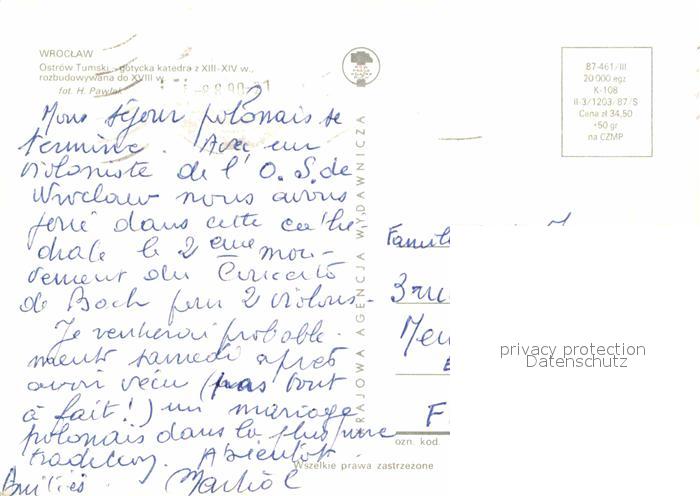 WROCŁAW
Ostrów Tumski - gotycka katedra z XIII-XIV w.,
rozbudowywana do XVIII w.
fot. H. Pawlak
87-461/III
20 000 egz
K-108
II-3/1203/87/S
Cena zł 34,50
+50 gr
na CZMP
Mon séjour polonais se
termine. Avec un
violoniste de l'O.S. de
Wroclaw nous avons
joué dans cette cathé
drale le 2ème mou-
vement du Concerto
de Bach pour 2 violons.
Je rentrerai probable-
ment samedi après
avoir vécu (pas tout
à fait!) un mariage
polonais dans la plus pure
tradition. A bientôt.
Amitiés
KRAJOWA AGENCJA WYDAWNICZA
Famil
3 ru
F
privacy protection
Datenschutz
ozn. kod.
Wszelkie prawa zastrzeżone